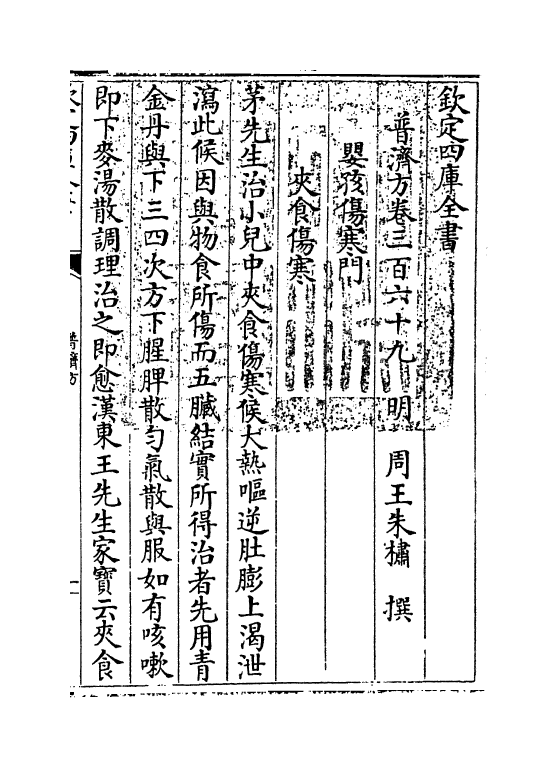 欽定四庫全書
普濟方卷三百六十九　明　周王朱橚　撰
嬰孩傷寒門
夾食傷寒
茅先生治小兒中夾食傷寒候大熱嘔逆肚膨上渴泄
瀉此候因與物食所傷而五臟結實所得治者先用青
金丹與下三四次方下腥脾散勻氣散與服如有咳嗽
即下麥湯散調理治之即愈漢東王先生家寶云夾食
普濟方
一